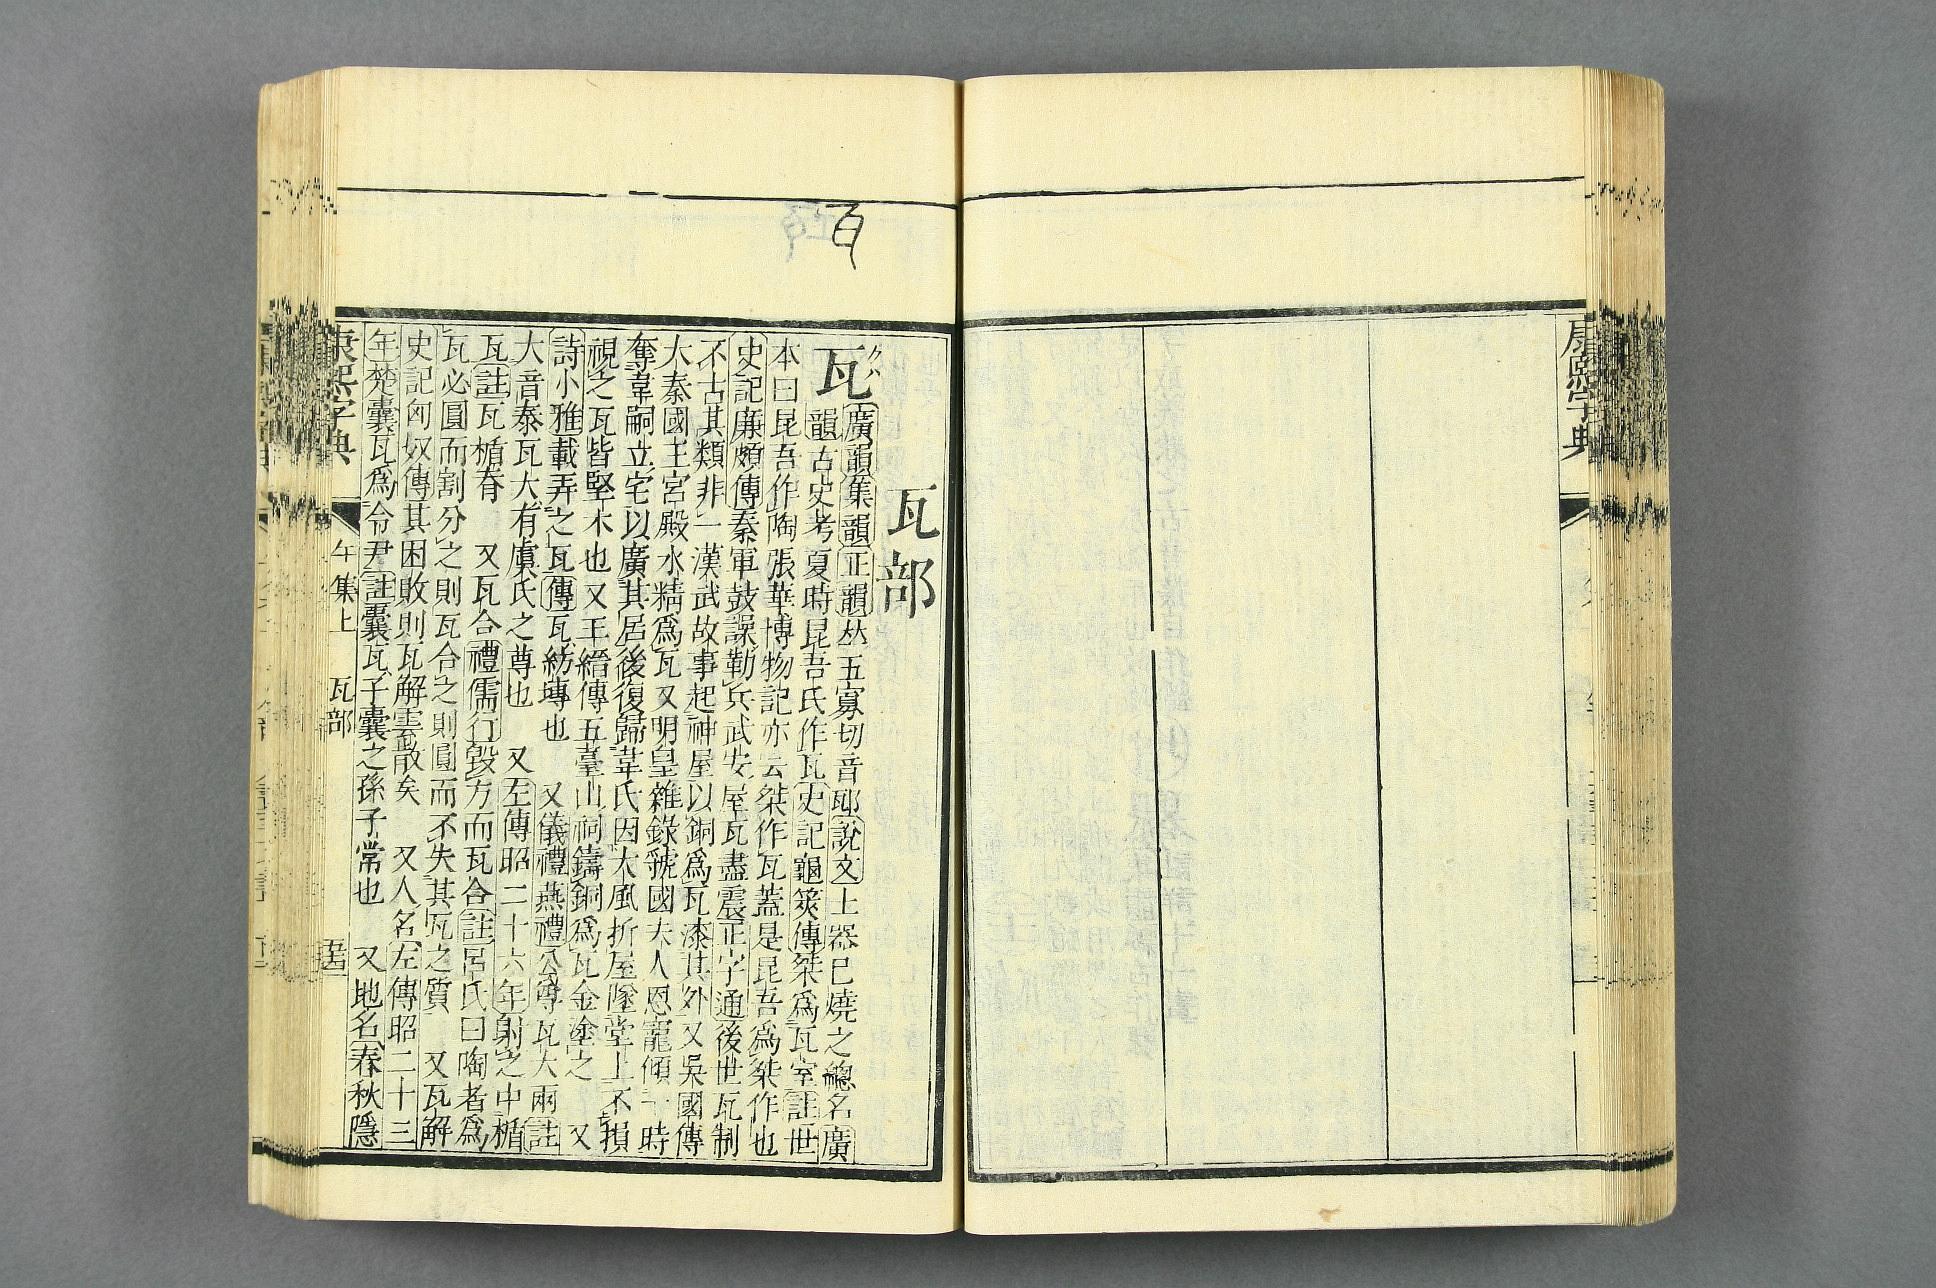 康熙字典
瓦部
瓦
廣韻集韻正韻𠀤五寡切音邷說文土器已燒之總名廣
韻古史考夏時昆吾氏作瓦史記龜筴傳桀爲瓦室註世
本曰昆吾作陶張華博物記亦云桀作瓦蓋是昆吾爲桀作也
史記廉頗傳秦軍鼓譟勒兵武安屋瓦盡震正字通後世瓦制
不古其類非一漢武故事起神屋以銅爲瓦漆其外又吳國傳
大秦國王宮殿水精爲瓦又明皇雜錄虢國夫人恩寵傾一時
奪韋嗣立宅以廣其居後復歸韋氏因大風折屋墜堂上不損
視之瓦皆堅木也又王縉傳五臺山祠鑄銅爲瓦金塗之 又
詩小雅載弄之瓦傳瓦紡塼也 又儀禮燕禮公尊瓦大兩註
大音泰瓦大有虞氏之尊也 又左傳昭二十六年射之中楯
瓦註瓦楯脊 又瓦合禮儒行毀方而瓦合註呂氏曰陶者爲
瓦必圓而割分之則瓦合之則圓而不失其瓦之質 又瓦解
史記匈奴傳其困敗則瓦解雲散矣 又人名左傳昭二十三
年楚囊瓦爲令尹註囊瓦子囊之孫子常也 又地名春秋隱
康熙字典 午集上 瓦部